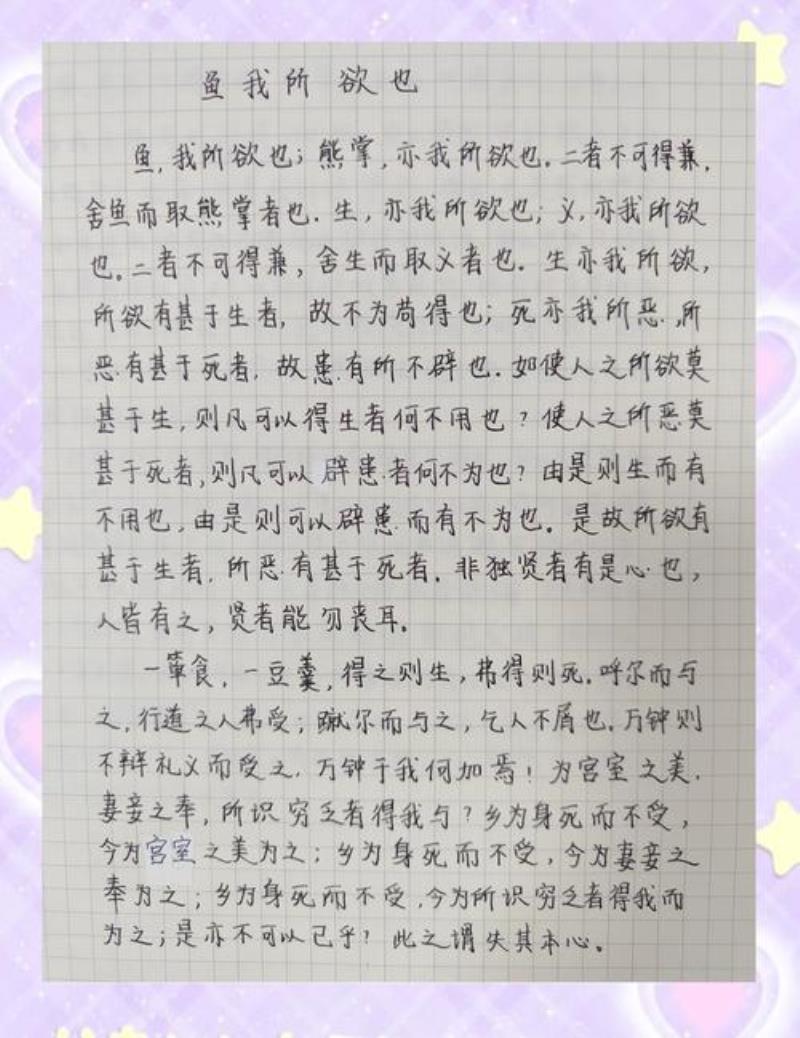 鱼我所欲也
鱼,我所欲也;熊掌,亦我所欲也.二者不可得兼,
舍鱼而取熊掌者也.生,亦我所欲也;义,亦我所欲
也.二者不可得兼,舍生而取义者也.生亦我所欲,
所欲有甚于生者,故不为苟得也;死亦我所恶,所
恶有甚于死者.故患有所不辟也.如使人之所欲莫
甚于生,则凡可以得生者何不用也?使人之所恶莫
甚于死者,则凡可以辟患者何不为也?由是则生而有
不用也,由是则可以辟患而有不为也。是故所欲有
甚于生者,所恶有甚于死者.非独贤者有是心也,
人皆有之,贤者能勿丧耳.
一箪食,一豆羹,得之则生,弗得则死.呼尔而与
之,行道之人弗受;蹴尔而与之,乞人不屑也.万钟则
不辩礼义而受之.万钟于我何加焉!为宫室之美.
妻妾之奉,所识穷乏者得我与?乡为身死而不受,
今为宫室之美为之;乡为身死而不受,今为妻妾之
奉为之;乡为身死而不受,今为所识穷乏者得我而
为之;是亦不可以已乎?此之谓失其本心。